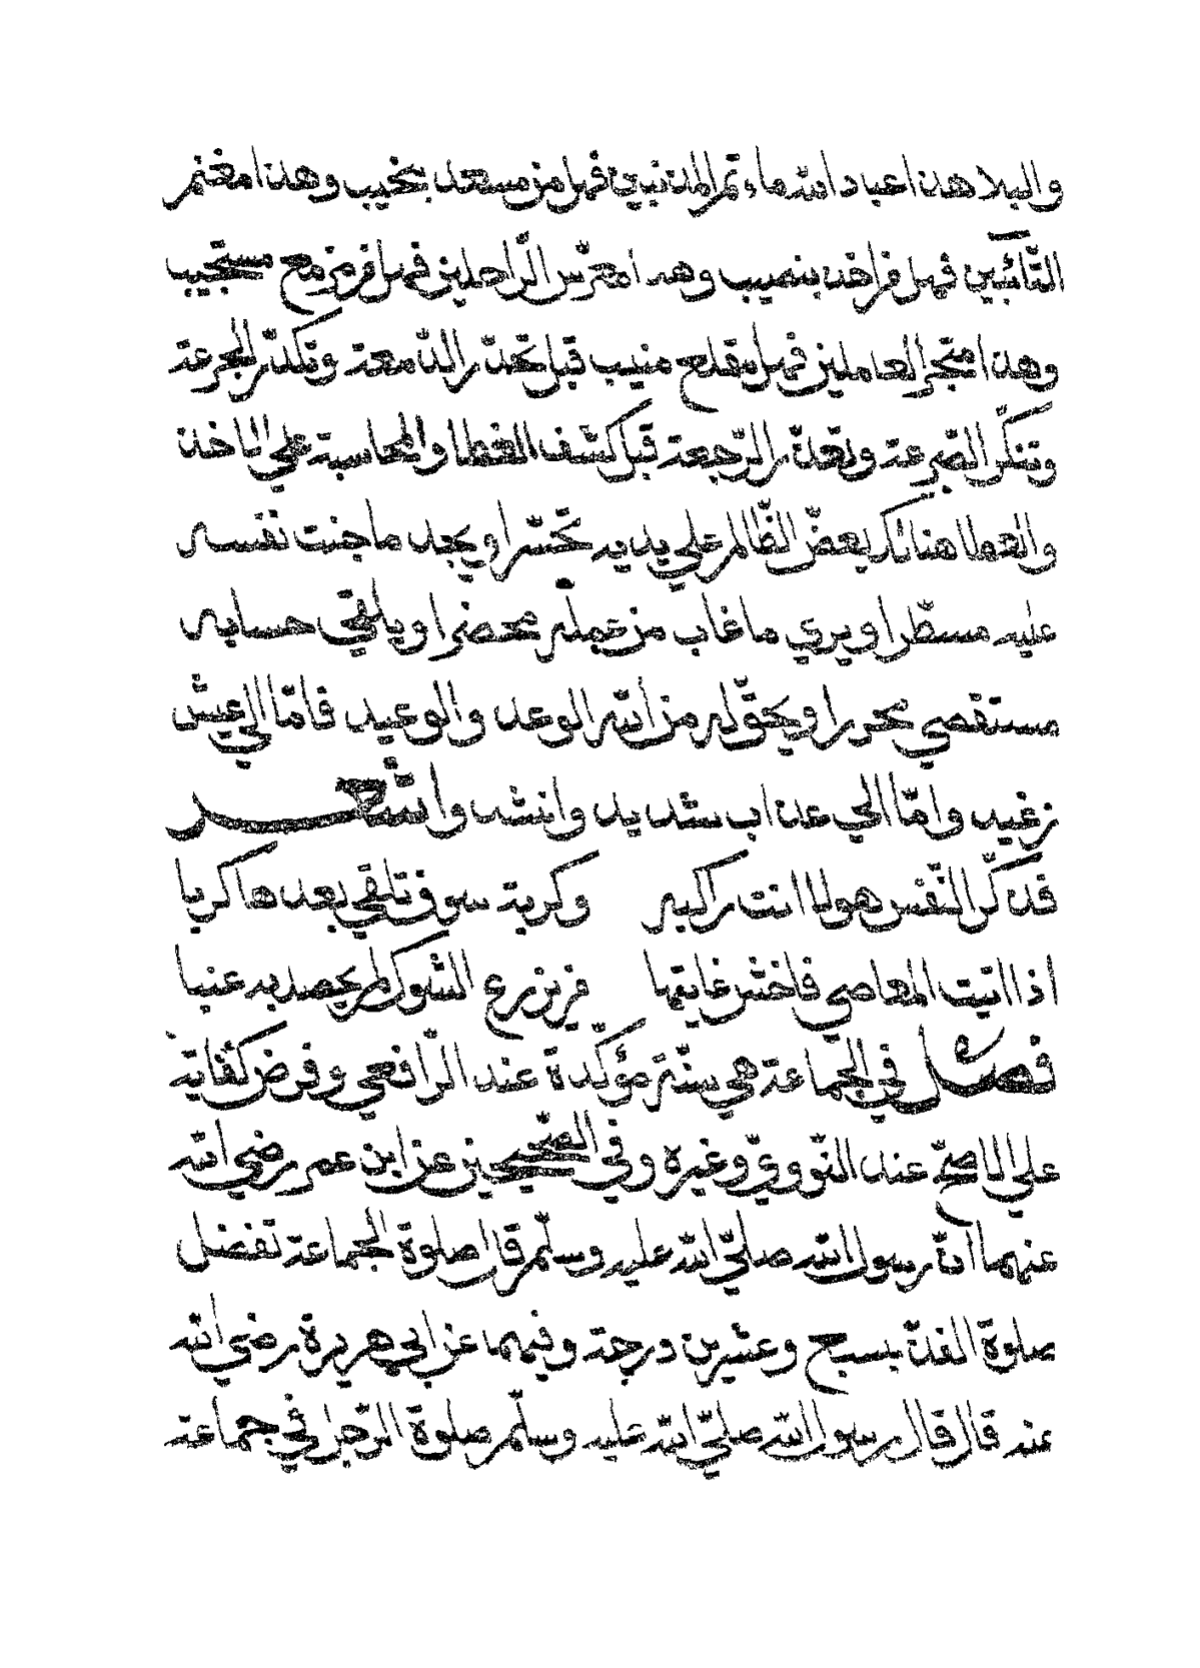 والبلا هذا عباد الله ماء تم المذنبين فهل من مسعد بنحيب وهذا مغنم
التّائبين فهل فراخذ بنصيب وهذا معرّس الرّاحلين فهل فرمزمع مستجيب
وهذا متجر العاملين فهل مقلع منيب قبل تحدّر الدّمعة وتكدّر الجرعة
وتنكّر الصرعة وتعذّر الرّجعة قبل كشف الغطا والمحاسبة علي الاخذ
والعطا هنالك يعضّ الظّالم علي يديه تحسّرا ويجد ما جنت نفسه
عليه مسطّرا ويري ما غاب من عمله محضرا ويلقي حسابه
مستقصي محررا ويحقّ له من الله الوعد والوعيد فامّا الي عيش
رغيد وامّا الي عذاب شديد وانشد واشعر
قد ذكّر النّفس هولا انت راكبه وكربة سوف تلقي بعدها كربا
اذا اتيت المعاصي فاخش غايتها فمن يزرع الشوك لم يحصد به عنبا
فصل في الجماعة هي سنّة مؤكّدة عند الرّافعي وفرض كفاية
علي الاصحّ عند النّوويّ وغيره وفي الصّحيحين عن ابن عمر رضي الله
عنهما انّ رسول الله صلّي الله عليه وسلّم قال صلوة الجماعة تفضل
صلوة الفذّ بسبع وعشرين درجة وفيهما عن ابي هريرة رضي الله
عنه قال قال رسول الله صلّي الله عليه وسلّم صلوة الرّجل في جماعة